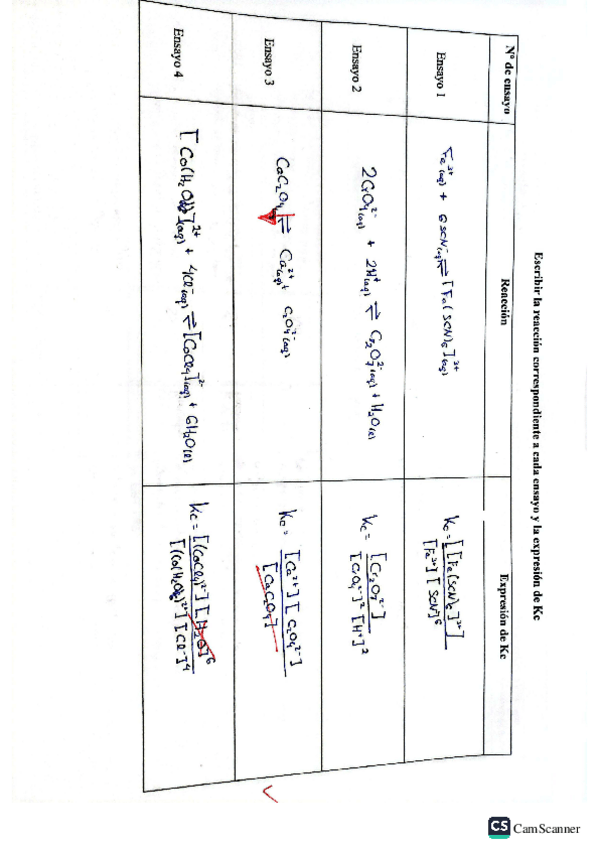 Escribir la reacción correspondiente a cada ensayo y la expresión de Kc
Nº de ensayo Reacción Expresión de Kc
Ensayo 1 Fe³⁺(aq) + 6 SCN⁻(aq) ⇌ [Fe(SCN)₆]³⁺(aq) Kc = [[Fe(SCN)₆]³⁺] / [Fe³⁺][SCN]⁶
Ensayo 2 2CrO₄²⁻(aq) + 2H⁺(aq) ⇌ Cr₂O₇²⁻(aq) + H₂O(l) Kc = [Cr₂O₇²⁻] / [CrO₄²⁻]² [H⁺]²
Ensayo 3 CaC₂O₄ ⇌ Ca²⁺(aq) + C₂O₄²⁻(aq) Kc = [Ca²⁺][C₂O₄²⁻] / [CaC₂O₄]
Ensayo 4 [Co(H₂O)₆]²⁺(aq) + 4Cl⁻(aq) ⇌ [CoCl₄]²⁻(aq) + 6H₂O(l) Kc = [(CoCl₄)²⁻][H₂O]⁶ / [(Co(H₂O)₆)²⁺][Cl⁻]⁴
CS CamScanner